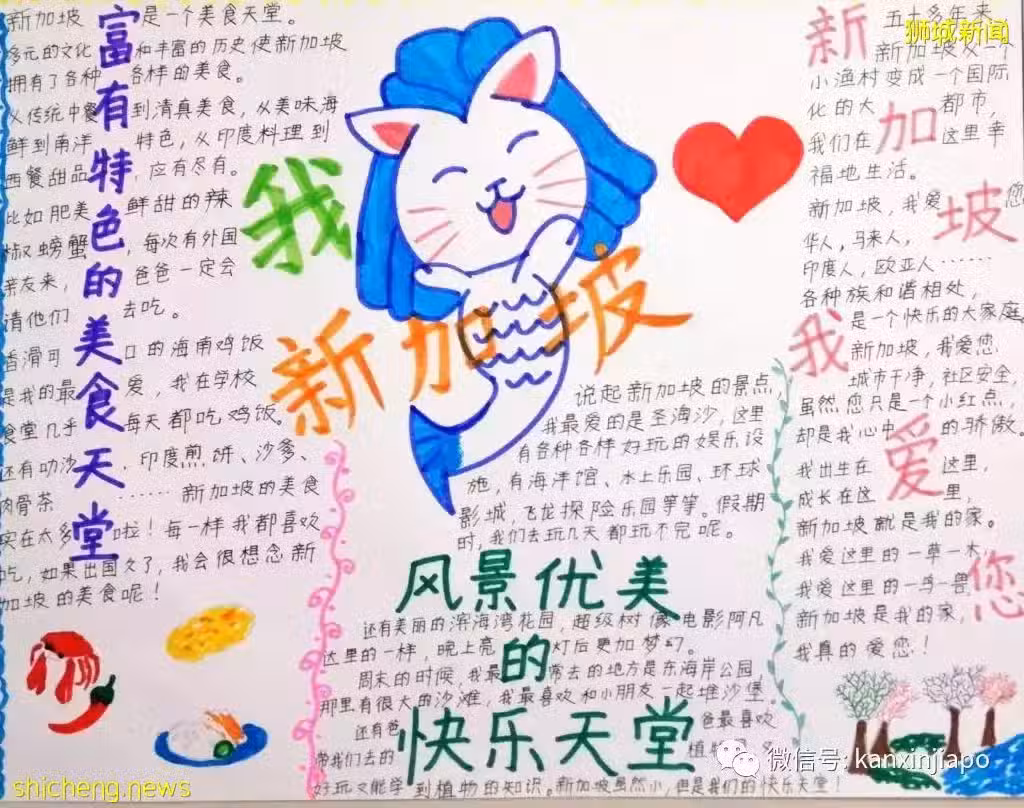 狮城新闻
富有特色的美食天堂
新加坡是一个美食天堂。
多元的文化和丰富的历史使新加坡
拥有了各种各样的美食。
从传统中餐到清真美食，从美味海
鲜到南洋特色，从印度料理到
西餐甜品，应有尽有。
比如肥美鲜甜的辣
椒螃蟹，每次有外国
亲友来，爸爸一定会
请他们去吃。
香滑可口的海南鸡饭
是我的最爱，我在学校
食堂几乎每天都吃鸡饭。
还有叻沙、印度煎饼、沙爹、
肉骨茶……新加坡的美食
实在太多啦！每一样我都喜欢
吃，如果出国久了，我会很想念新
加坡的美食呢！
我
新加坡
说起新加坡的景点，
我最爱的是圣淘沙，这里
有各种各样好玩的娱乐设
施，有海洋馆、水上乐园、环球
影城，飞龙探险乐园等等。假期
时，我们去玩几天都玩不完呢。
风景优美
的
快乐天堂
还有美丽的滨海湾花园，超级树像电影阿凡
达里的一样，晚上亮灯后更加梦幻。
周末的时候，我最常去的地方是东海岸公园，
那里有很大的沙滩，我最喜欢和小朋友一起堆沙堡。
还有爸爸最喜欢
带我们去的植物
好玩又能学到植物的知识。新加坡虽然小，但是我们的快乐天堂！
新加坡我爱您
五十多年来，
新加坡从一个
小渔村变成一个国际
化的大都市，
我们在这里幸
福地生活。
新加坡，我爱您
华人，马来人，
印度人，欧亚人……
各种族和谐相处，
是一个快乐的大家庭
新加坡，我爱您
城市干净，社区安全，
虽然您只是一个小红点，
却是我心中的骄傲。
我出生在这里，
成长在这里，
新加坡就是我的家。
我爱这里的一草一木，
我爱这里的一鸟一兽
新加坡是我的家，
我真的爱您！
微信号: kanxinjiapo
shicheng.news